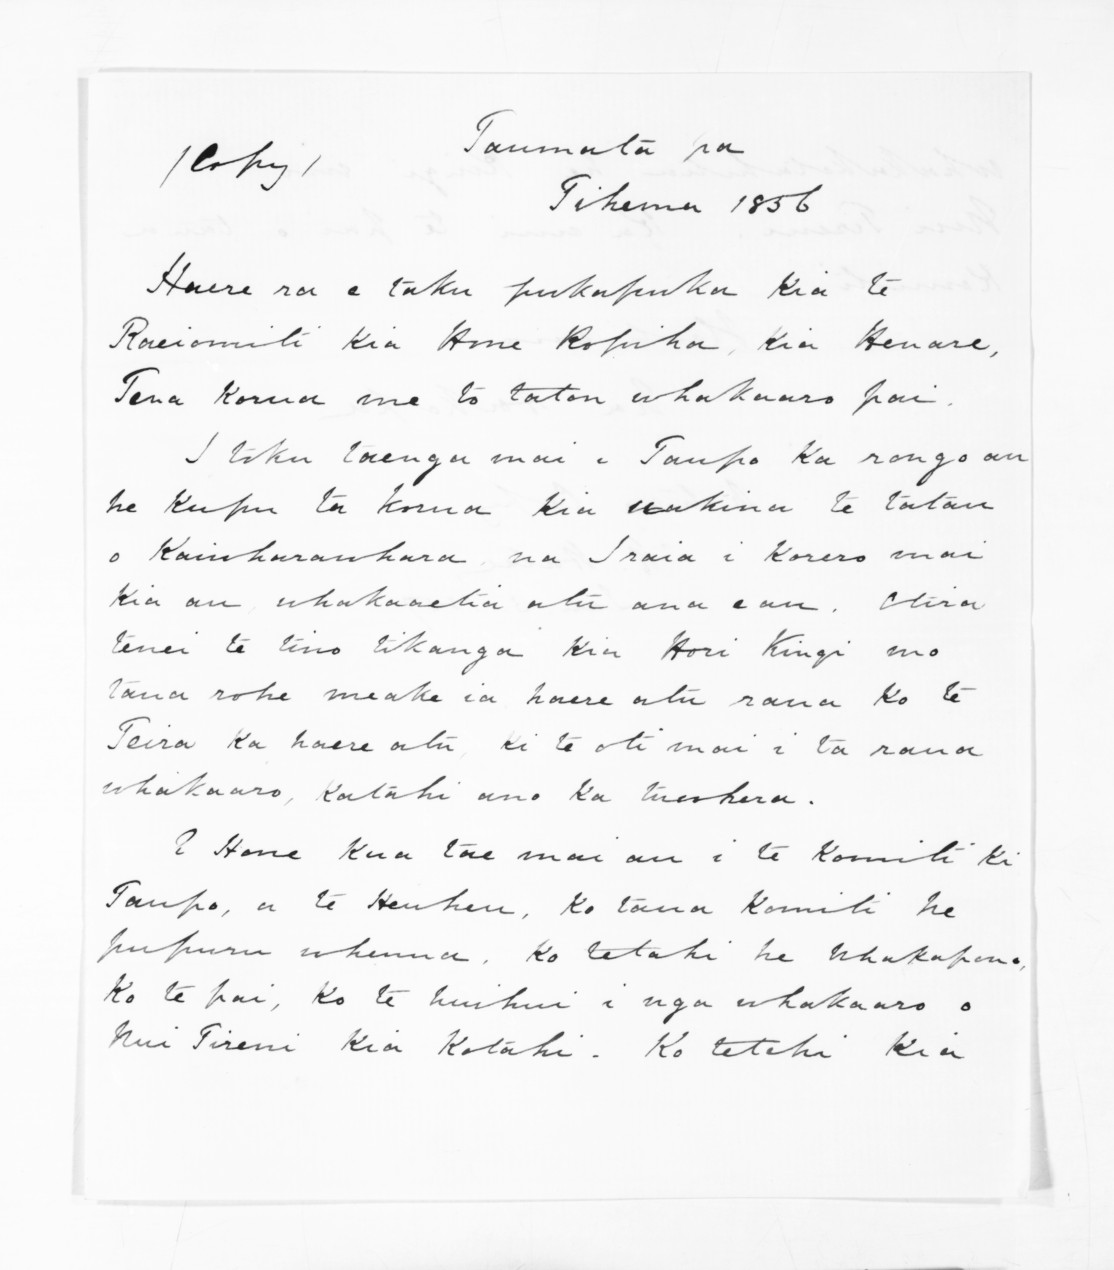 /Copy/
Taumata pa
Tihema 1856
Haere ra e taku pukapuka kia te
Raeiomiti kia Hone Ropiha, kia Henare,
Tena korua me to tatou whakaaro pai.
I toku taenga mai i Taupo ka rongo au
he kupu ta korua kia uakina te tatau
o Kaiwharawhara na Iraia i korero mai
kia au, whakaaetia atu ana e au. Otira
tenei te tino tikanga kia Hori Kingi mo
tana rohe meake ia haere atu raua ko te
Teira ka haere atu, ki te oti mai i ta raua
whakaaro, katahi ano ka tuwhera.
E Hone kua tae mai au i te Komiti ki
Taupo, a te Heuheu, ko tana Komiti he
pupuru whenua, ko tetahi he whakapono,
ko te pai, ko te huihui i nga whakaaro o
Nui Tireni kia kotahi. Ko tetehi kia